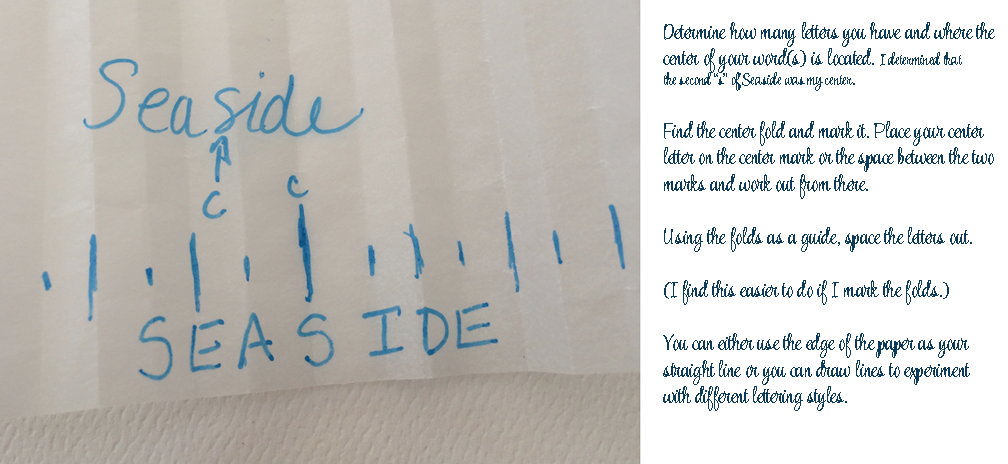 Seaside
C
C
SEASIDE
Determine how many letters you have and where the
center of your word(s) is located. I determined that
the second "s" of Seaside was my center.
Find the center fold and mark it. Place your center
letter on the center mark or the space between the two
marks and work out from there.
Using the folds as a guide, space the letters out.
(I find this easier to do if I mark the folds.)
You can either use the edge of the paper as your
straight line or you can draw lines to experiment
with different lettering styles.